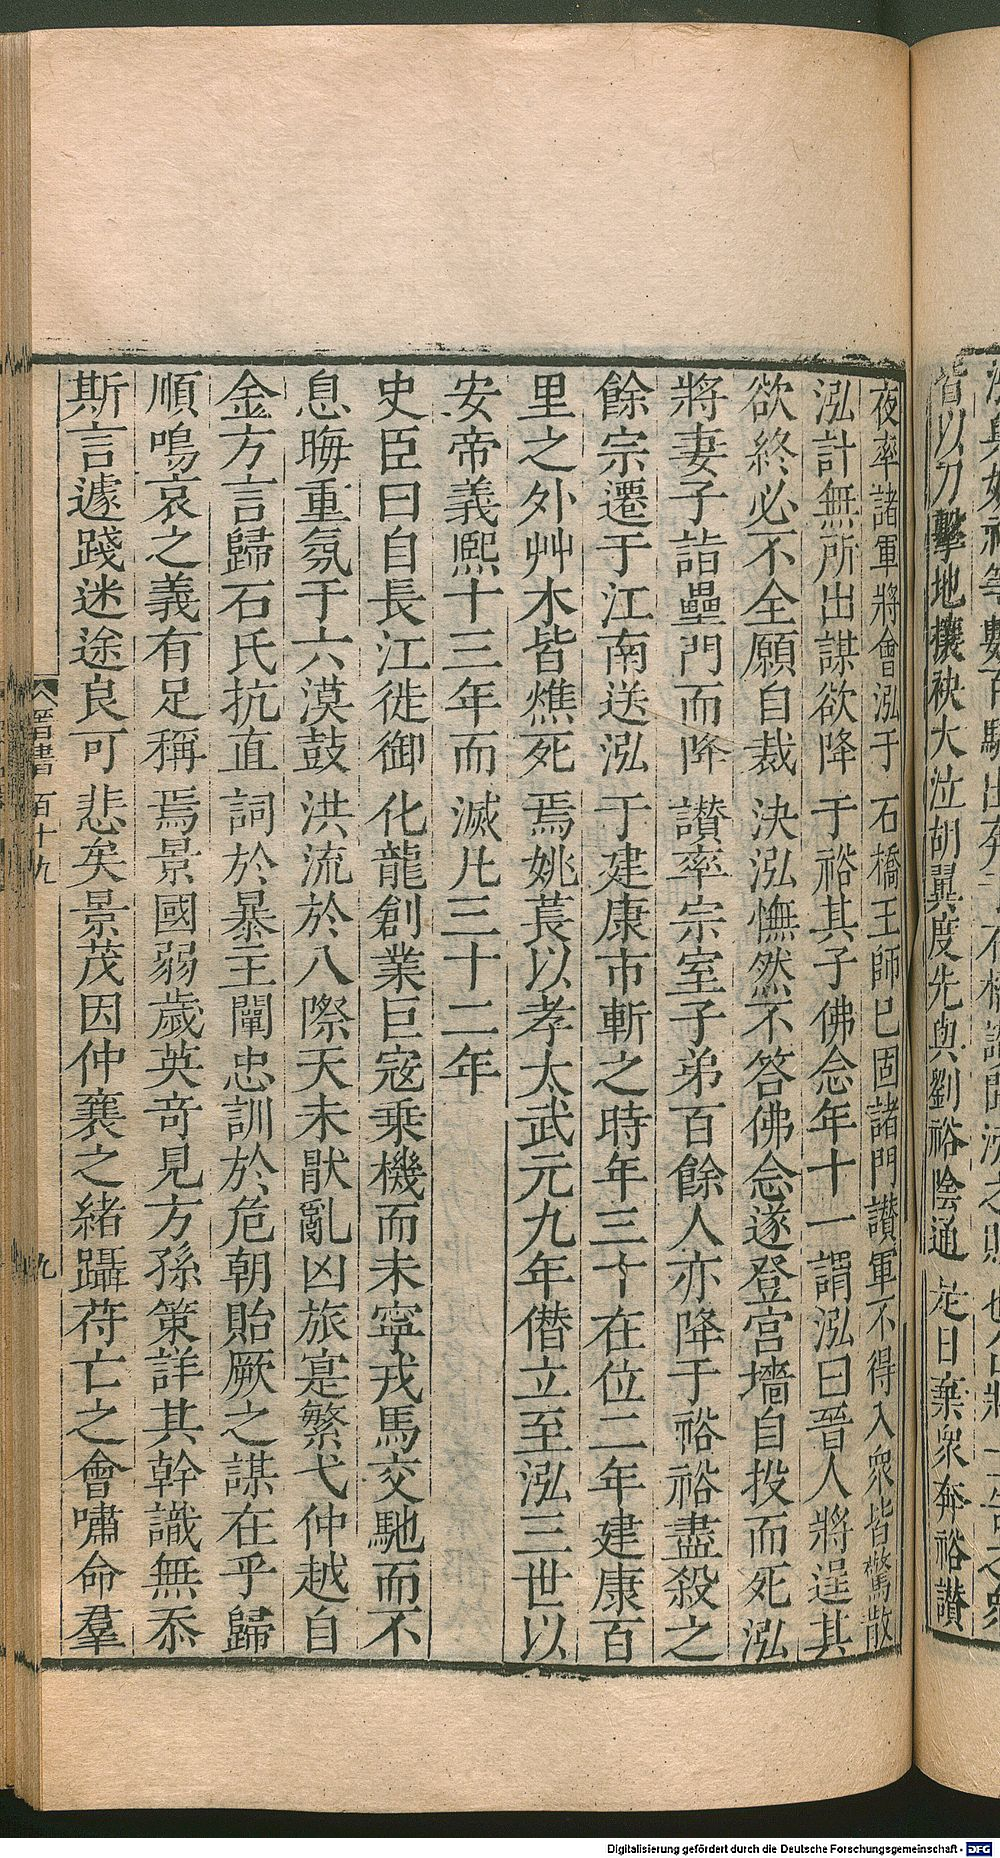 皆以刀擊地攘袂大泣胡翼度先與劉裕陰通是日棄衆奔裕讃
夜率諸軍將會泓于石橋王師已固諸門讃軍不得入衆皆驚散
泓計無所出謀欲降于裕其子佛念年十一謂泓曰晉人將逞其
欲終必不全願自裁決泓憮然不答佛念遂登宫墻自投而死泓
將妻子詣壘門而降讃率宗室子弟百餘人亦降于裕裕盡殺之
餘宗遷于江南送泓于建康市斬之時年三十在位二年建康百
里之外艸木皆燋死焉姚萇以孝太武元九年僭立至泓三世以
安帝義熙十三年而滅凡三十二年
史臣曰自長江徙御化龍創業巨寇乗機而未寧戎馬交馳而不
息晦重氛于六漠鼓洪流於八際天未猒亂凶旅寔繁弋仲越自
金方言歸石氏抗直詞於暴主闡忠訓於危朝貽厥之謀在乎歸
順鳴哀之義有足稱焉景國弱歲英奇見方孫策詳其幹識無忝
斯言遽踐迷途良可悲矣景茂因仲襄之緒躡苻亡之會嘯命羣
晉書 百十九 九
Digitalisierung gefördert durch die Deutsche Forschungsgemeinschaft - DFG